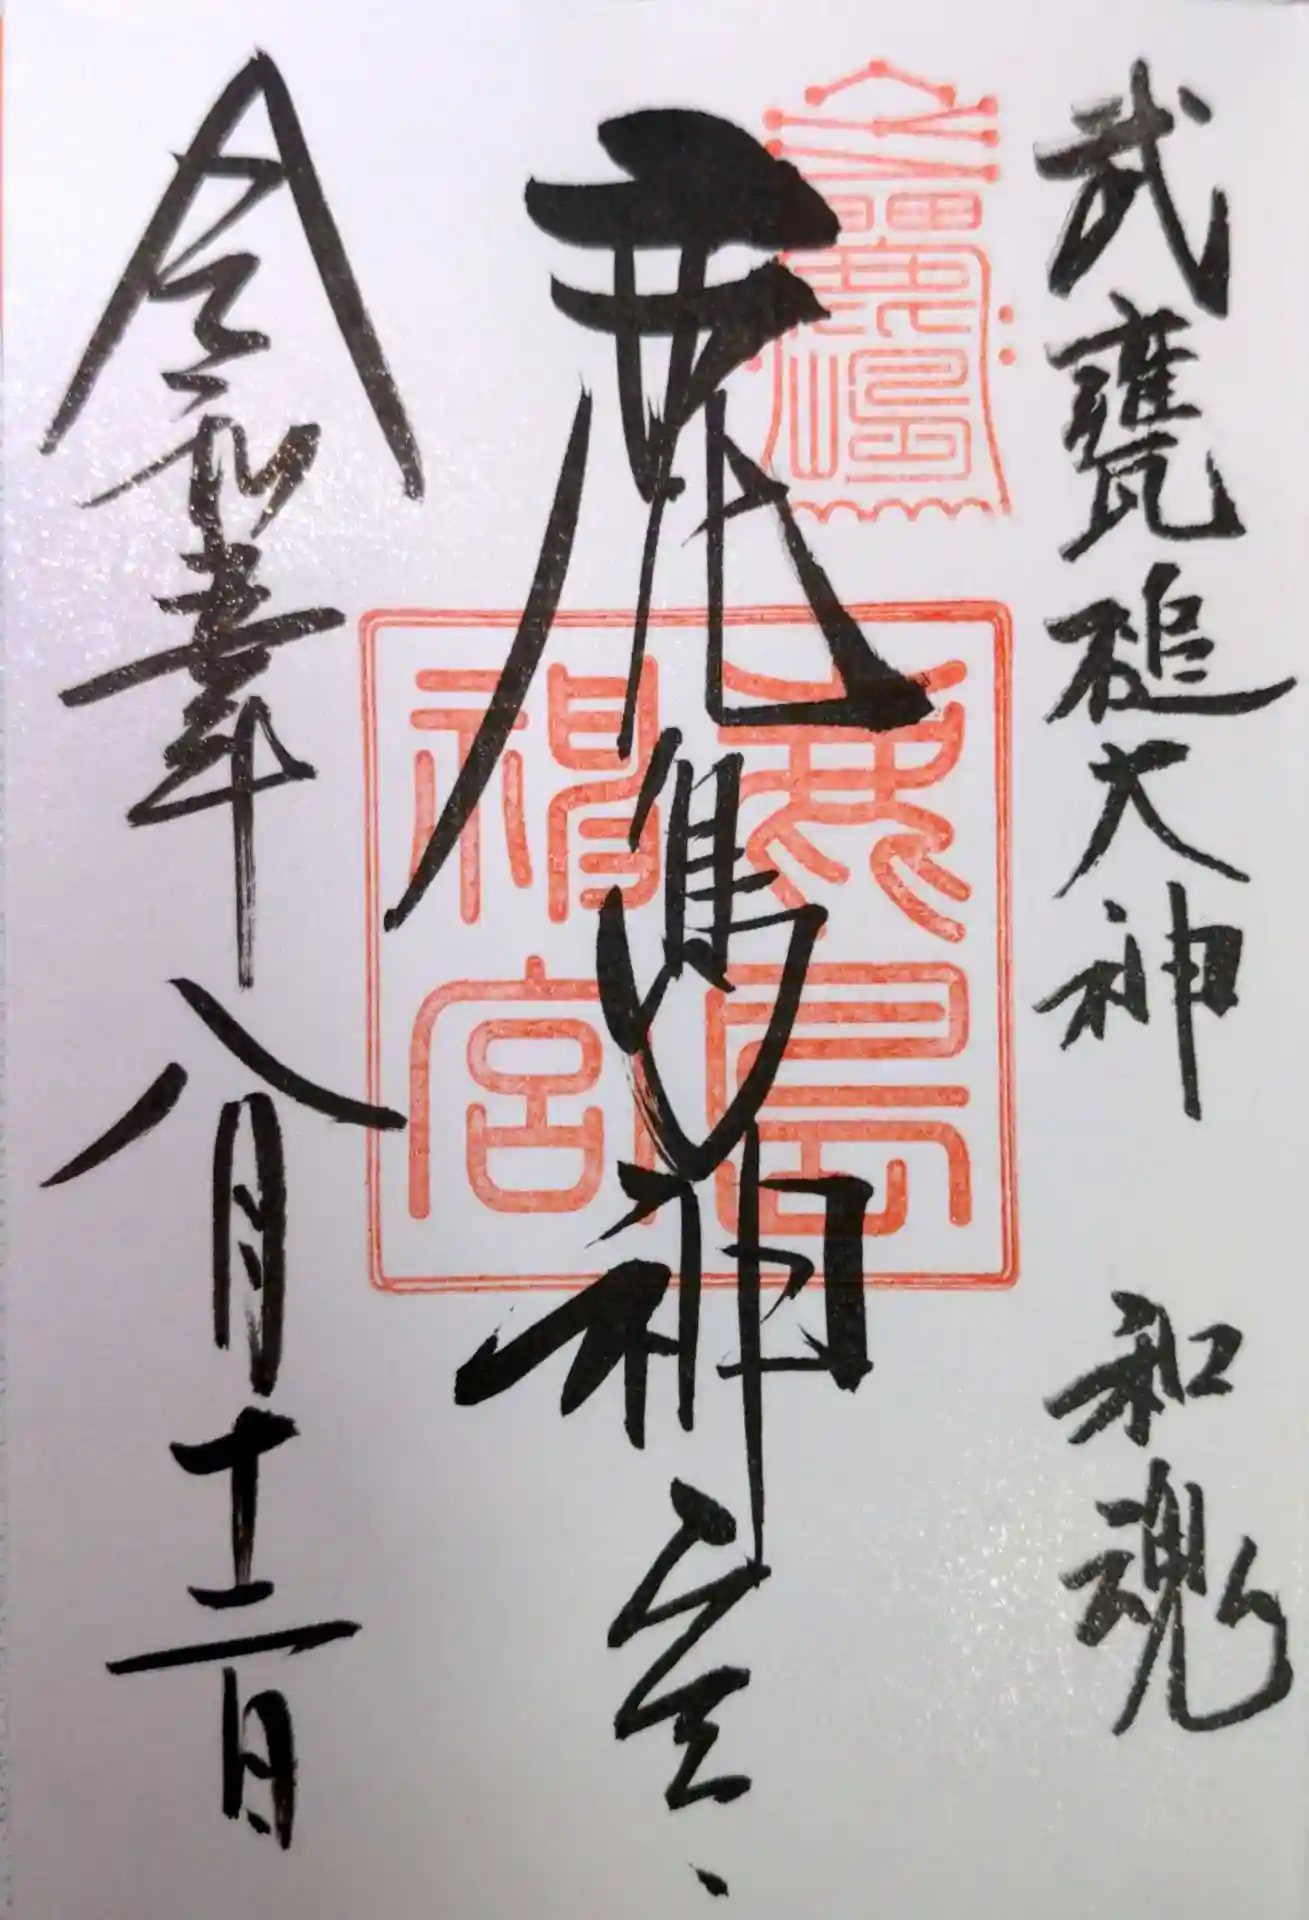 武甕槌大神 和魂
鹿島神宮
令和年八月十二日
鹿島
神宮